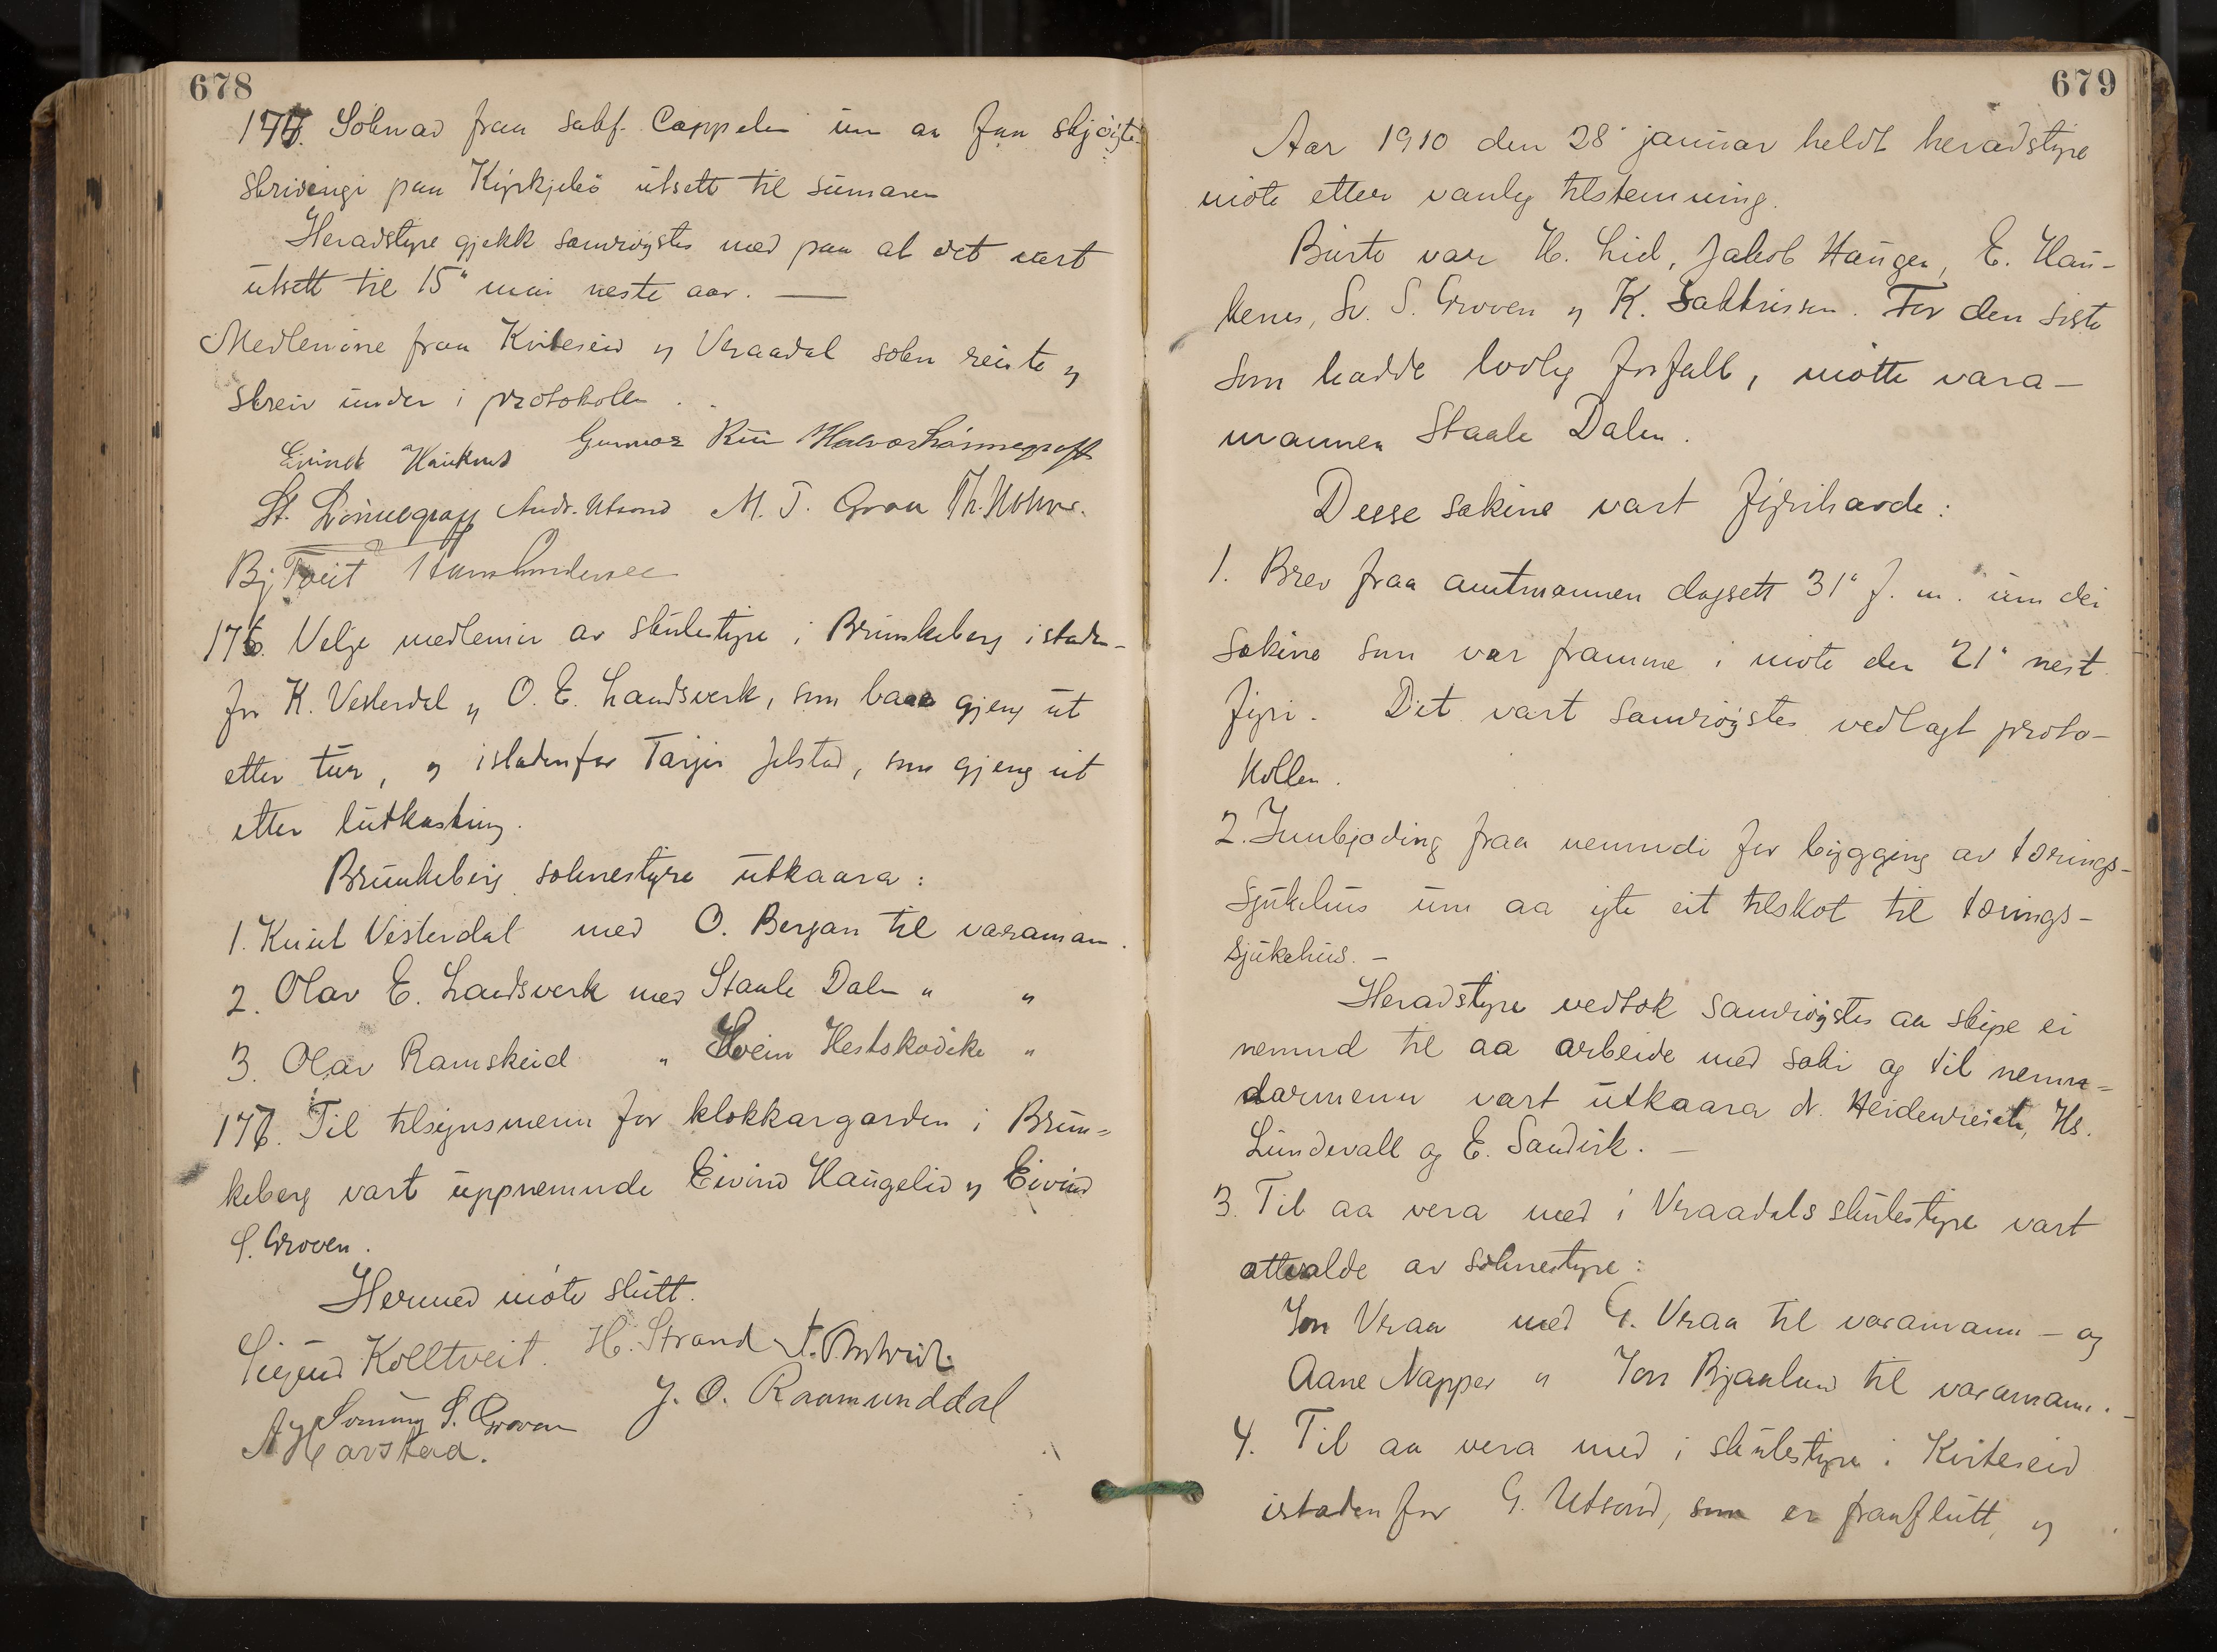 678
174. Söknad fraa sakf. Cappelen um aa faa skjöyte-
skrivingi paa Kyrkjebö utsett til sumaren
Heradstyre gjekk samröystes med paa at det vart
utsett til 15" mai neste aar. —
Medlemine fraa Kviteseid og Vraadal soku reiste og
skreiv under i protokollen.
Eivind Hauknes Gunnar Rui Halvor Lönnegraff
St. Lönnegraff Andr. Utsond M. T. Groa Th.
Bj. Tveit Hans Lundevall
175. Velje medlemir av skulestyre i Brunkeberg istaden-
for K. Vesterdal og O. E. Landsverk, som baae gjeng ut
etter tur, og istadenfor Tarjei Jelstad, som gjeng ut
etter lutkasting.
Brunkeberg soknestyre utkaara:
1. Knut Vesterdal med O. Berjan til varamann.
2. Olav E. Landsverk med Staale Dalen " "
3. Olav Ramskeid " Svein Hestskodike "
176. Til tilsynsmenn for klokkargarden i Brun=
keberg vart uppnemnde Eivind Haugelid og Eivind
S. Groven.
Hermed möte slutt.
Sigurd Kolltveit. H. Strand
Sveinung S. Groven J. O. Raamunddal
A. Aarstad.
679
Aar 1910 den 28" januar heldt heradstyre
möte etter vanleg tilstemning.
Burte var H. Lid, Jakob Haugen, E. Hau-
kenes, Sv. S. Groven og K. Sakkrissen. For den siste
som hadde lovleg forfall, mötte vara-
mannen Staale Dalen.
Desse sakine vart fyrihavde:
1. Brev fraa amtmannen dagsett 31" f. m. um dei
sakine som var framme i möte den 21" nest
fyri. Det vart samröystes vedlagt proto-
kollen.
2. Innbjoding fraa nemndi for bygging av tærings-
sjukehus um aa yte eit tilskot til tærings-
sjukehus. -
Heradstyre vedtok samröystes aa skipe ei
nemnd til aa arbeide med saki og til nemn=
darmenn vart utkaara dr. Heidenreich, Hs.
Lundevall og E. Sandsik. —
3. Til aa vera med i Vraadals skulestyre vart
attvalde av soknestyre:
Jon Vraa med G. Vraa til varamann - og
Aane Napper " Jon Bjaaland til varamann. -
4. Til aa vera med i skulestyre i Kviteseid
istaden for G. Utsond, som er fraaflutt, og